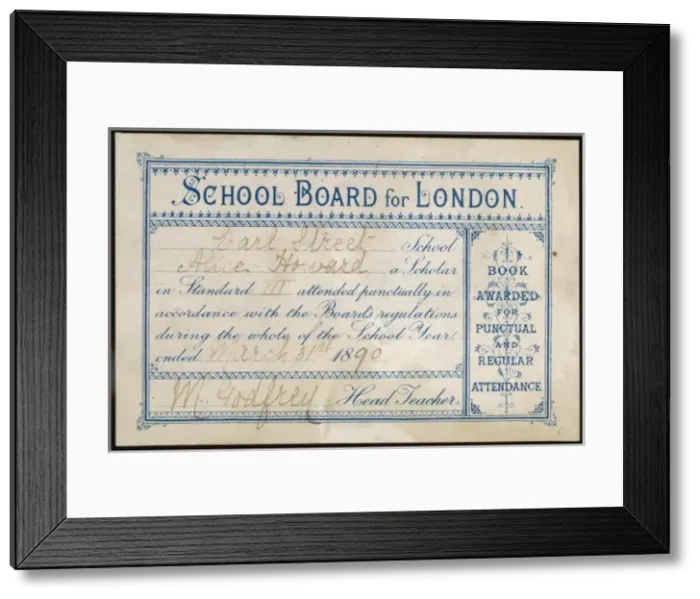 SCHOOL BOARD for LONDON.
Earl Street School
Alice Howard a Scholar
in Standard III attended punctually in
accordance with the Board's regulations
during the whole of the School Year,
ended March 31st 1890
M. Godfrey Head Teacher.
BOOK
AWARDED
FOR
PUNCTUAL
AND
REGULAR
ATTENDANCE